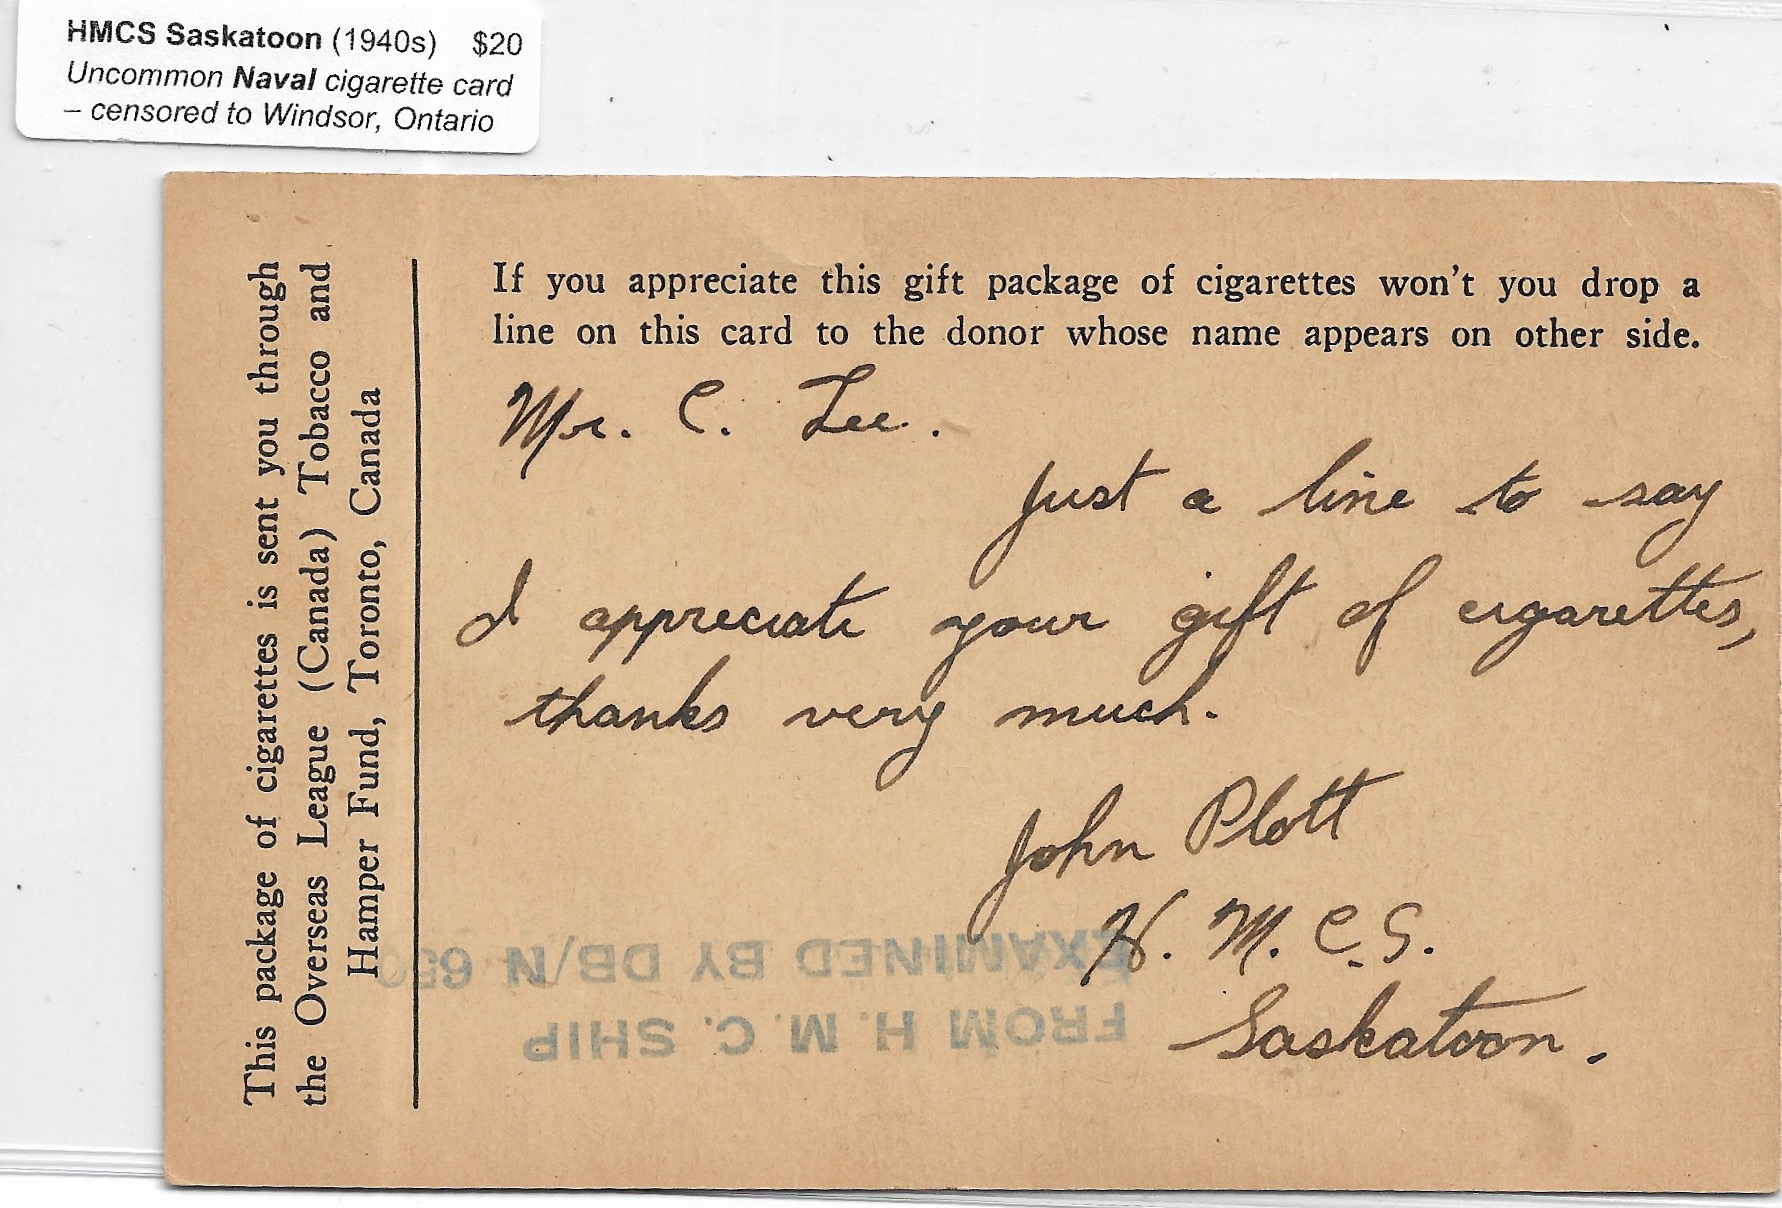 HMCS Saskatoon (1940s) $20
Uncommon Naval cigarette card
– censored to Windsor, Ontario
This package of cigarettes is sent you through
the Overseas League (Canada) Tobacco and
Hamper Fund, Toronto, Canada
If you appreciate this gift package of cigarettes won't you drop a
line on this card to the donor whose name appears on other side.
Mr. C. Lee.
Just a line to say
I appreciate your gift of cigarettes,
thanks very much.
John Plott
H. M. C. S.
Saskatoon.
FROM H. M. C. SHIP
EXAMINED BY DB/N